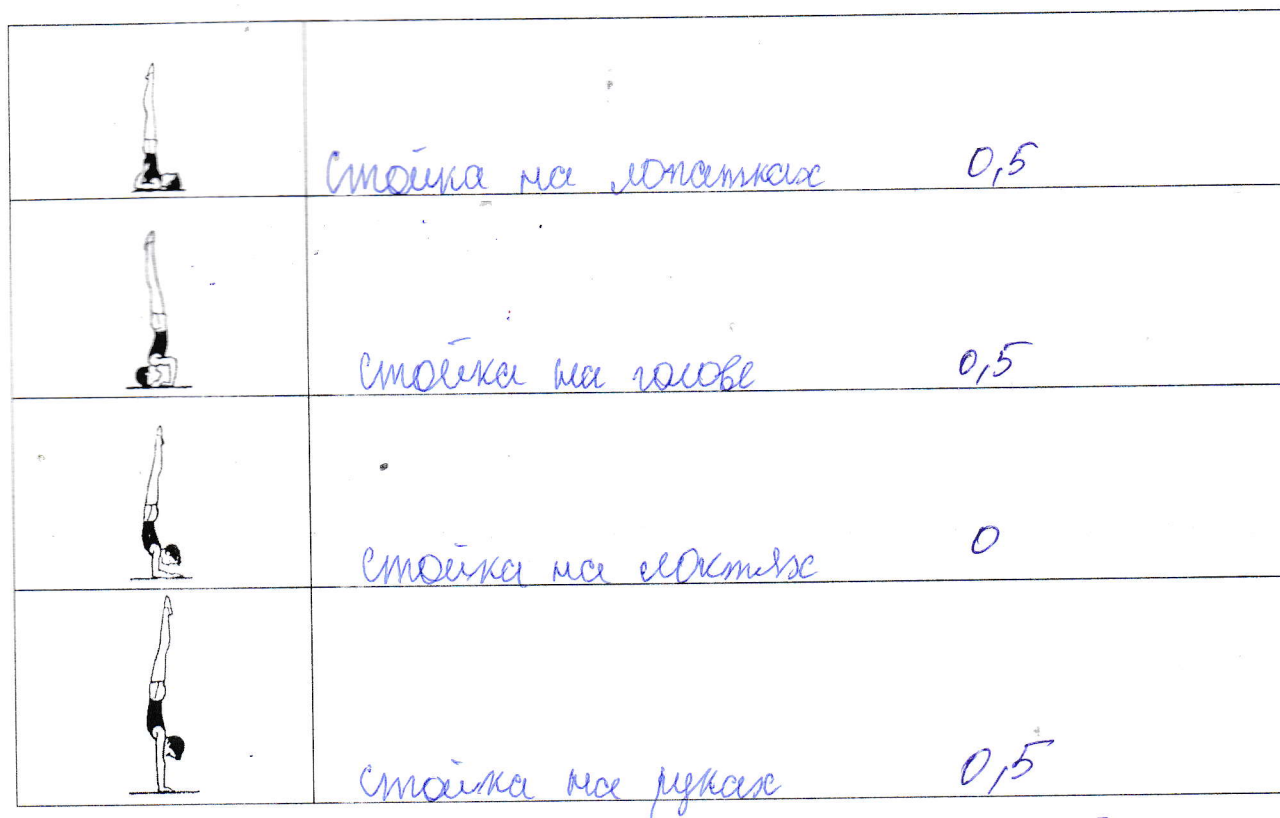 стойка на лопатках 0,5
стойка на голове 0,5
стойка на локтях 0
стойка на руках 0,5